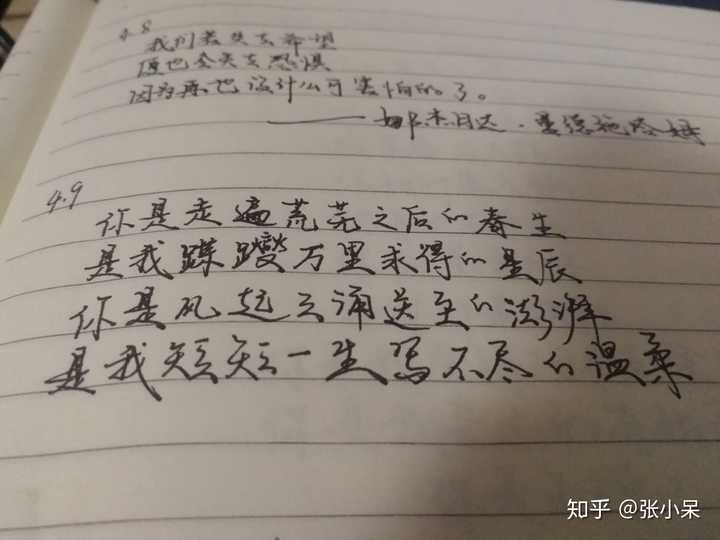 4.8
我们若失去希望
便也会失去恐惧
因为再也没什么可害怕的了。
——
4.9
你是走遍荒芜之后的春生
是我蹀躞万里求得的星辰
你是风起云涌送至的澎湃
是我短短一生写不尽的温柔
知乎 @张小呆